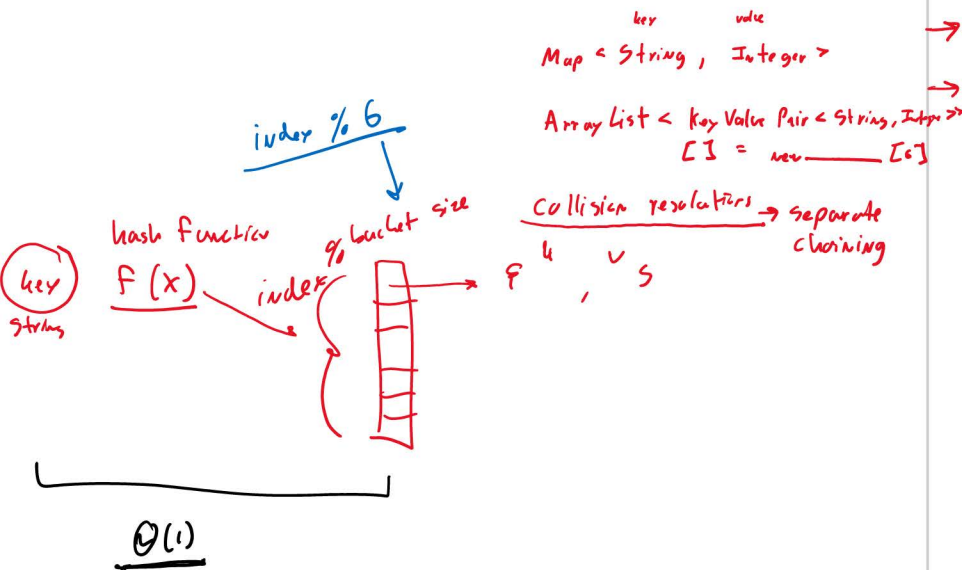 key value
Map < String, Integer >
ArrayList < Key Value Pair < String, Integer >>
[] = new _____ [6]
index % 6
collision resolutions → separate
chaining
hash function
% bucket size
key
f(x)
index
k v
,
string
Θ(1)